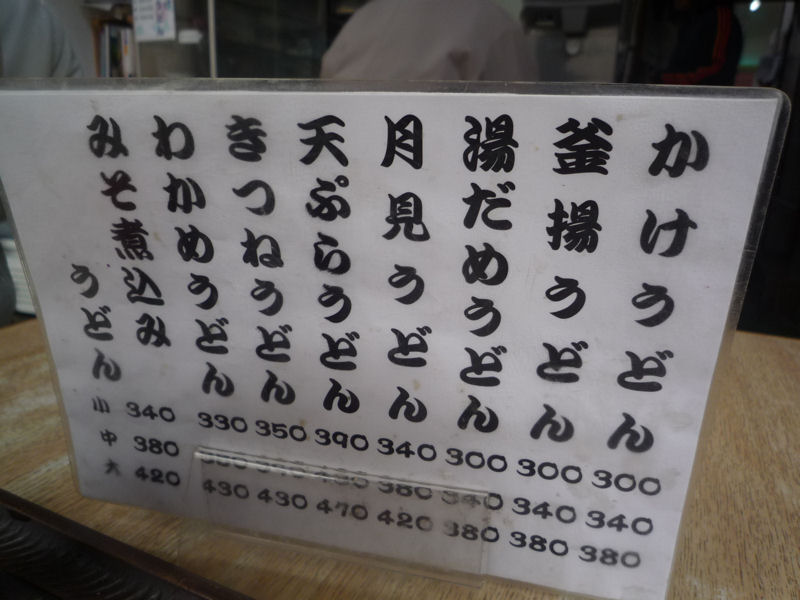 かけうどん 300 340 380
釜揚うどん 300 340 380
湯だめうどん 300 340 380
月見うどん 340 380 420
天ぷらうどん 390 430 470
きつねうどん 350 430
わかめうどん 330 430
みそ煮込み
うどん
340 380 420
小 中 大